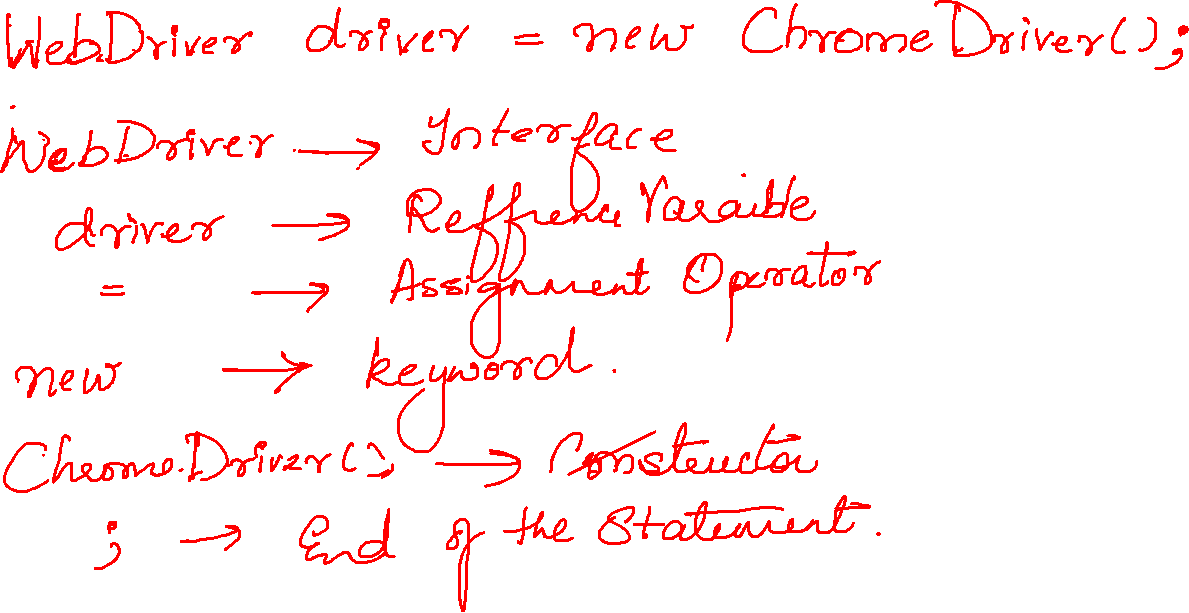 WebDriver driver = new ChromeDriver();
WebDriver → Interface
driver → Reffrence Varaible
= → Assignment Operator
new → keyword.
ChromeDriver() → Constructor
; → End of the Statement.